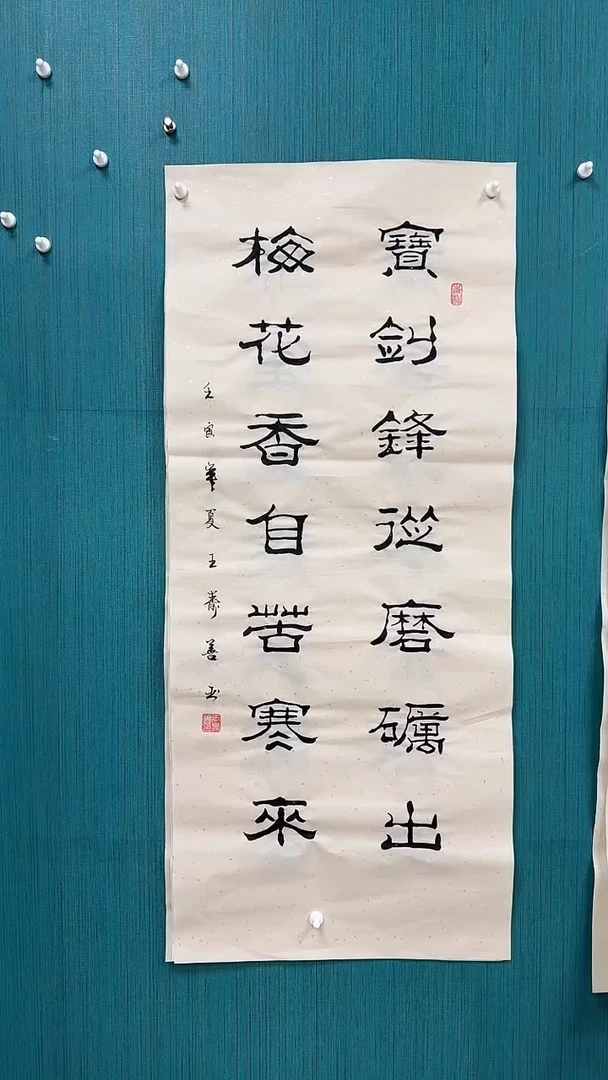 寶劍鋒從磨礪出
梅花香自苦寒來
壬寅夏王善书